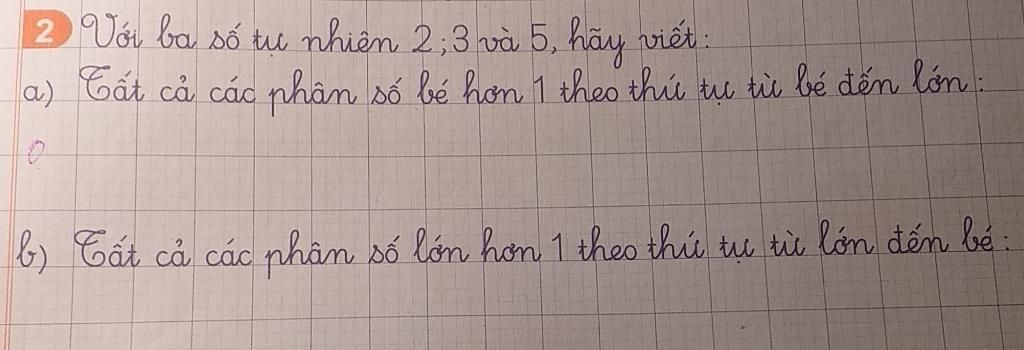 2 Với ba số tự nhiên 2; 3 và 5, hãy viết:
a) Tất cả các phân số bé hơn 1 theo thứ tự từ bé đến lớn:
b) Tất cả các phân số lớn hơn 1 theo thứ tự từ lớn đến bé: